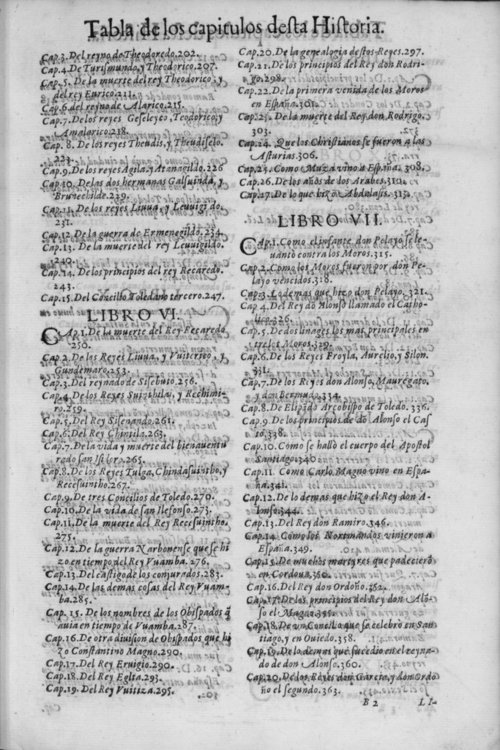 Tabla de los capitulos desta Historia.
Cap.3. Del reyno de Theodoredo.202.
Cap.4. De Turismundo, y Theodorico.207.
Cap.5. De la muerte del rey Theodorico, y
del rey Eurico.211.
Cap.6. del reyno de Alarico.215.
Cap.7. De los reyes Geseleyco, Teodorico, y
Amalarico.218.
Cap.8. De los reyes Theudis, y Theudiselo.
223.
Cap.9. De los reyes Agila, y Atanagildo.226
Cap.10. De las dos hermanas Galsuinda, y
Brunechilde.229.
Cap.11. De los reyes Liuua, y Leuuigildo.
231.
Cap.12. De la guerra de Ermenegildo.234.
Cap.13. De la muerte del rey Leuuigildo.
240.
Cap.14. De los principios del rey Recaredo.
243.
Cap.15. Del Concilio Toledano tercero.247.
LIBRO VI.
CAp.1. De la muerte del Rey Recaredo
250.
Cap.2. De los Reyes Liuua, y Vuiterico, y
Gundemaro.253.
Cap.3. Del reynado de Sisebuto.256.
Cap.4. De los Reyes Suinthila, y Rechimiro.259.
Cap.5. Del Rey Sisenando.261.
Cap.6. Del Rey Chintila.263.
Cap.7. De la vida y muerte del bienauentu
rado san Isidro.265.
Cap.8. De los Reyes Tulga, Chindasuintho, y
Recesuintho.267.
Cap.9. De tres Concilios de Toledo.270.
Cap.10. De la vida de san Ilefonso.273.
Cap.11. De la muerte del Rey Recesuintho.
275.
Cap.12. De la guerra Narbonense que se hi
zo en tiempo del Rey Vuamba.276.
Cap.13. Del castigo de los conjurados.283.
Cap.14. De las demas cosas del Rey Vuam-
ba.285.
Cap.15. De los nombres de los Obispados q̃
auia en tiempo de Vuamba.287.
Cap.16. De otra diuision de Obispados que hi
zo Constantino Magno.290.
Cap.17. Del Rey Eruigio.290.
Cap.18. Del Rey Egita.293.
Cap.19. Del Rey Vuitiza.295.
Cap.20. De la genealogia destos Reyes.297.
Cap.21. De los principios del Rey don Rodri-
go.298.
Cap.22. De la primera venida de los Moros
en España.301.
Cap.23. De la muerte del Rey don Rodrigo.
303.
Cap.24. Que los Christianos se fueron a las
Asturias.306.
Cap.25. Como Muza vino a España.308.
Cap.26. De los años de dos Arabes.310.
Cap.27. De lo que hizo Abdalasis.312.
LIBRO VII.
CAp.1. Como el infante don Pelayo se le-
uantò contra los Moros.315.
Cap.2. Como los Moros fueron por don Pe-
layo vencidos.318.
Cap.3. Lo demas que hizo don Pelayo.321.
Cap.4. Del Rey dō Alonso llamado el Catho-
lico.326.
Cap.5. De dos linages los mas principales en
tre los Moros.329.
Cap.6. De los Reyes Froyla, Aurelio, y Silon.
331.
Cap.7. De los Reyes don Alonso, Mauregato,
y don Bermudo.334.
Cap.8. De Elipādo Arçobispo de Toledo.336.
Cap.9. De los principios de dō Alonso el Cas
to.338.
Cap.10. Como se hallò el cuerpo del Apostol
Santiago.340
Cap.11. Como Carlo Magno vino en Espa-
ña.341.
Cap.12. De lo demas que hizo el Rey don A-
lonso.344.
Cap.13. Del Rey don Ramiro.346.
Cap.14. Como los Nortmandos vinieron a
España.349.
Cap.15. De muchos martyres que padecierō
en Cordoua.350.
Cap.16. Del Rey don Ordoño.352.
Cap.17. De los principios del Rey don Alō-
so el Magno.355.
Cap.18. De vn Concilio que se celebrò en San
tiago, y en Ouiedo.358.
Cap.19. De lo demas que sucedio en el reyna-
do de don Alonso.360.
Cap.20. De los Reyes don Garcia, y don Ordo
ño el segundo.363.
B 2 LI-